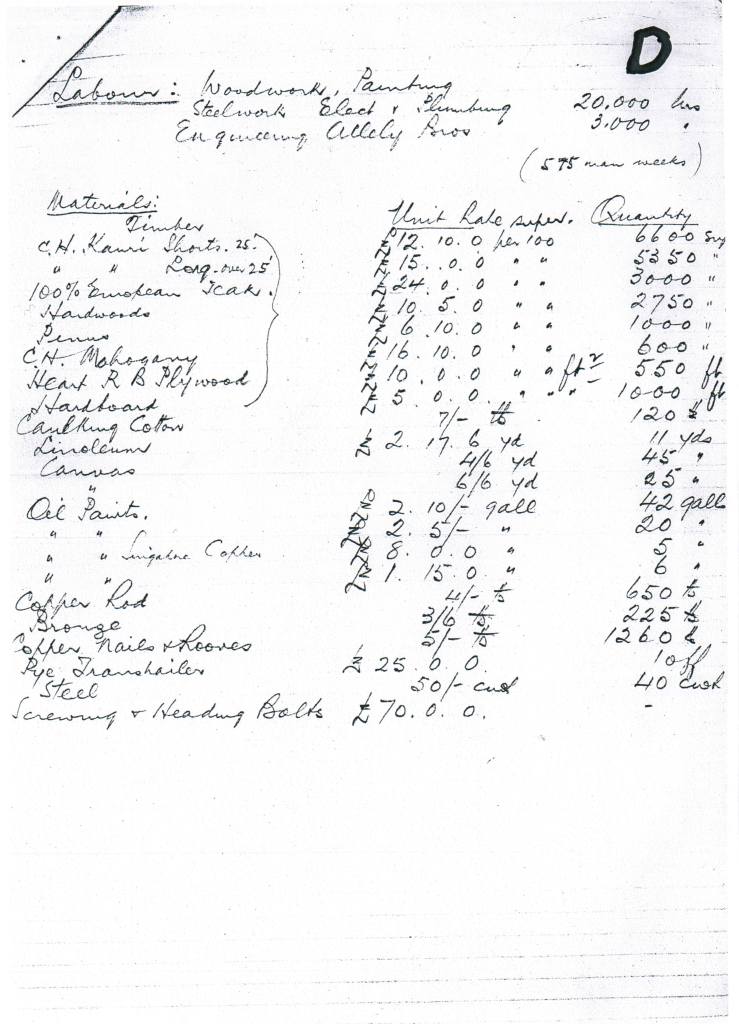 D
Labour: Woodwork, Painting
Steelwork Elect & Plumbing 20,000 hrs
Engineering Allely Bros 3,000 "
(575 man weeks)
Materials: Unit Rate super. Quantity
Timber
C.H. Kauri Shorts. 25' £12. 10. 0 per 100 6600 sup
" " Long. over 25' £15. 0. 0 " " 5350 "
100% European Teak. £24. 0. 0 " " 3000 "
Hardwoods £10. 5. 0 " " 2750 "
Pinus £6. 10. 0 " " 1000 "
C.H. Mahogany £16. 10. 0 " " 600 "
Heart R B Plywood £10. 0. 0 " " ft² 550 ft
Hardboard £5. 0. 0. " " " 1000 ft
Caulking Cotton 7/- lb 120 lb
Linoleum £2. 17. 6 yd 11 yds
Canvas 4/6 yd 45 "
" 6/6 yd 25 "
Oil Paints. 2. 10/- gall 42 galls
" " 2. 5/- " 20 "
" " Copper 8. 0. 0 " 5 "
" " 1. 15. 0 " 6 "
Copper Rod 4/- lb 650 lb
Bronze 3/6 lb 225 lb
Copper Nails & Rooves 5/- lb 1260 lb
Pye Transhailer £25. 0. 0. 1 off
Steel 50/- cwt 40 cwt
Screwing & Heading Bolts £70. 0. 0. -